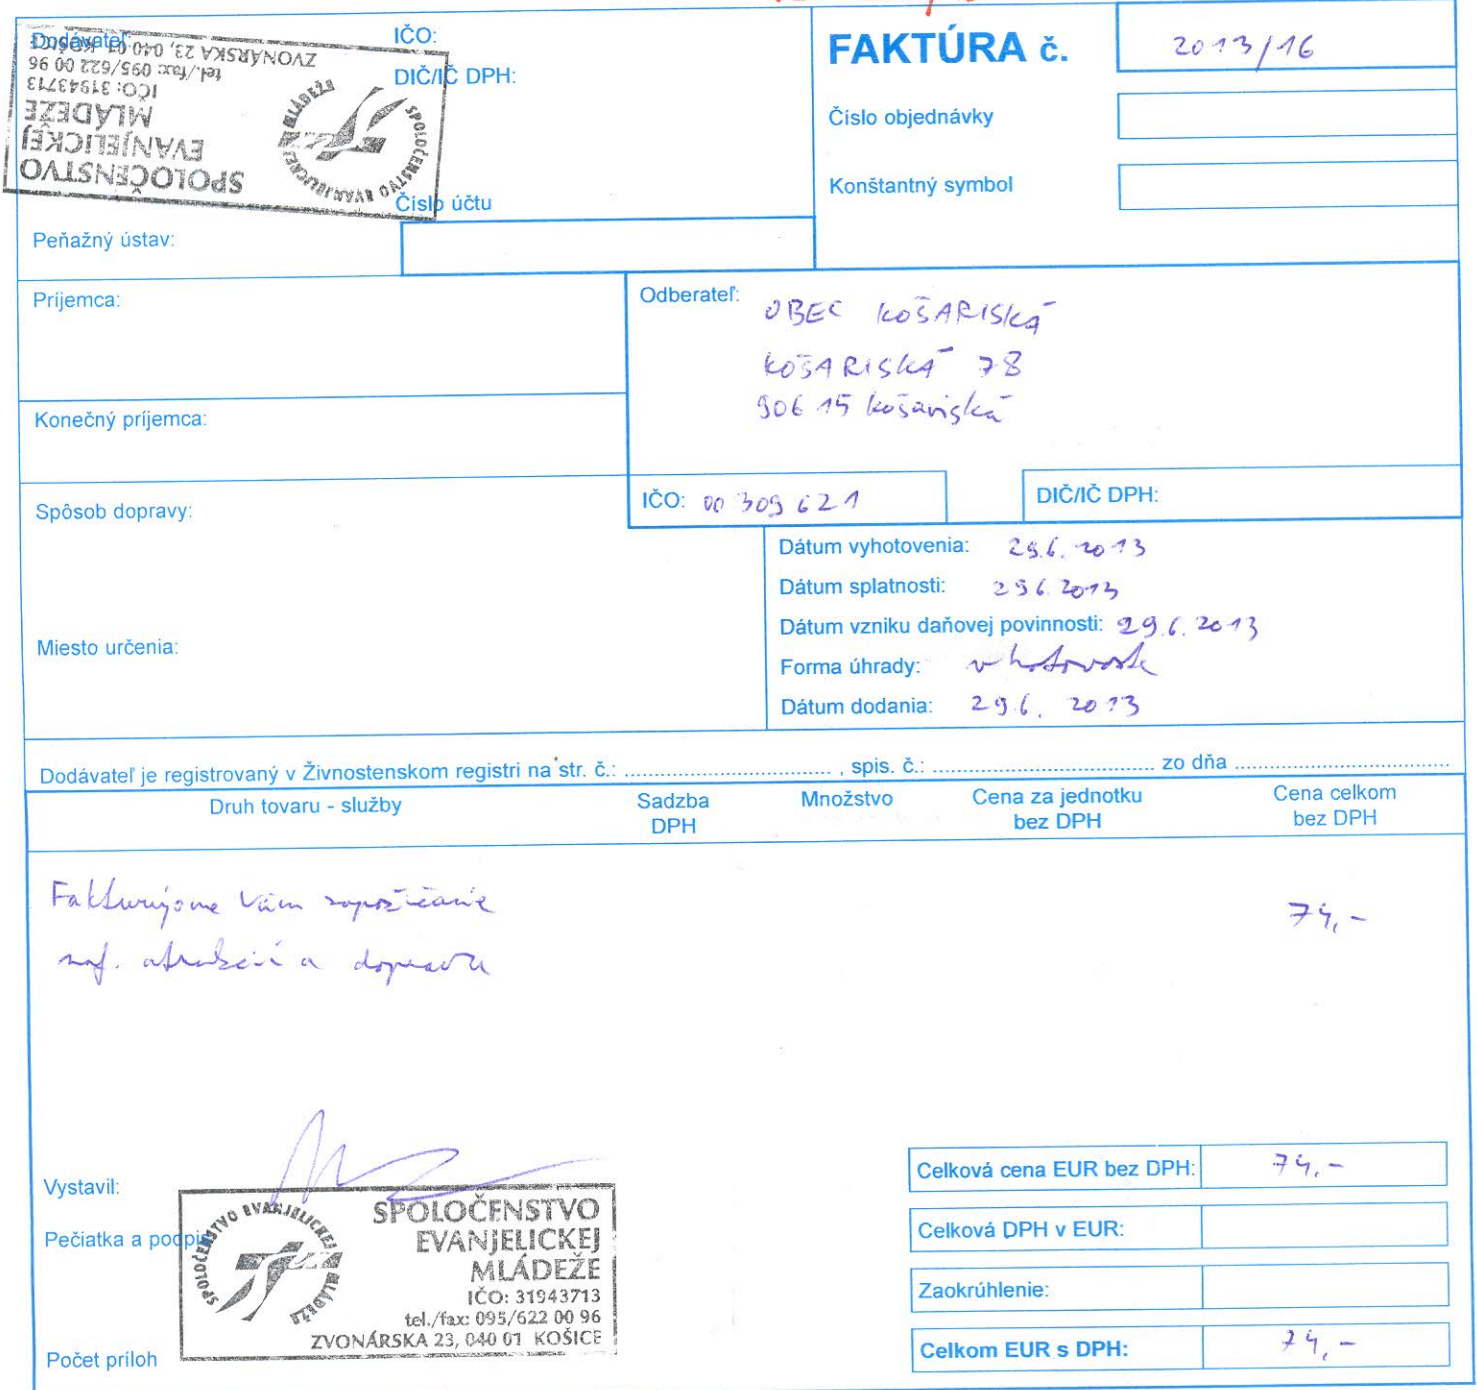 Dodávateľ:
IČO:
DIČ/IČ DPH:
SPOLOČENSTVO
EVANJELICKEJ
MLÁDEŽE
IČO: 31943713
tel./fax: 095/622 00 96
ZVONÁRSKA 23, 040 01 KOŠICE
SPOLOČENSTVO EVANJELICKEJ MLÁDEŽE
Číslo účtu
Peňažný ústav:
FAKTÚRA č. 2013/16
Číslo objednávky
Konštantný symbol
Príjemca:
Konečný príjemca:
Odberateľ:
OBEC KOŠARISKÁ
KOŠARISKÁ 78
906 15 Košariská
IČO: 00 309 621
DIČ/IČ DPH:
Spôsob dopravy:
Miesto určenia:
Dátum vyhotovenia: 29.6. 2013
Dátum splatnosti: 29 6. 2013
Dátum vzniku daňovej povinnosti: 29.6. 2013
Forma úhrady: v hotovosti
Dátum dodania: 29.6. 2013
Dodávateľ je registrovaný v Živnostenskom registri na str. č.: .................................. , spis. č.: .................................. zo dňa ..................................
Druh tovaru - služby
Sadzba
DPH
Množstvo
Cena za jednotku
bez DPH
Cena celkom
bez DPH
Fakturujeme Vám zapožičanie 74,-
naf. atrakcií a dopravu
Vystavil:
Pečiatka a podpis
SPOLOČENSTVO EVANJELICKEJ MLÁDEŽE
SPOLOČENSTVO
EVANJELICKEJ
MLÁDEŽE
IČO: 31943713
tel./fax: 095/622 00 96
ZVONÁRSKA 23, 040 01 KOŠICE
Počet príloh
Celková cena EUR bez DPH: 74,-
Celková DPH v EUR:
Zaokrúhlenie:
Celkom EUR s DPH: 74,-